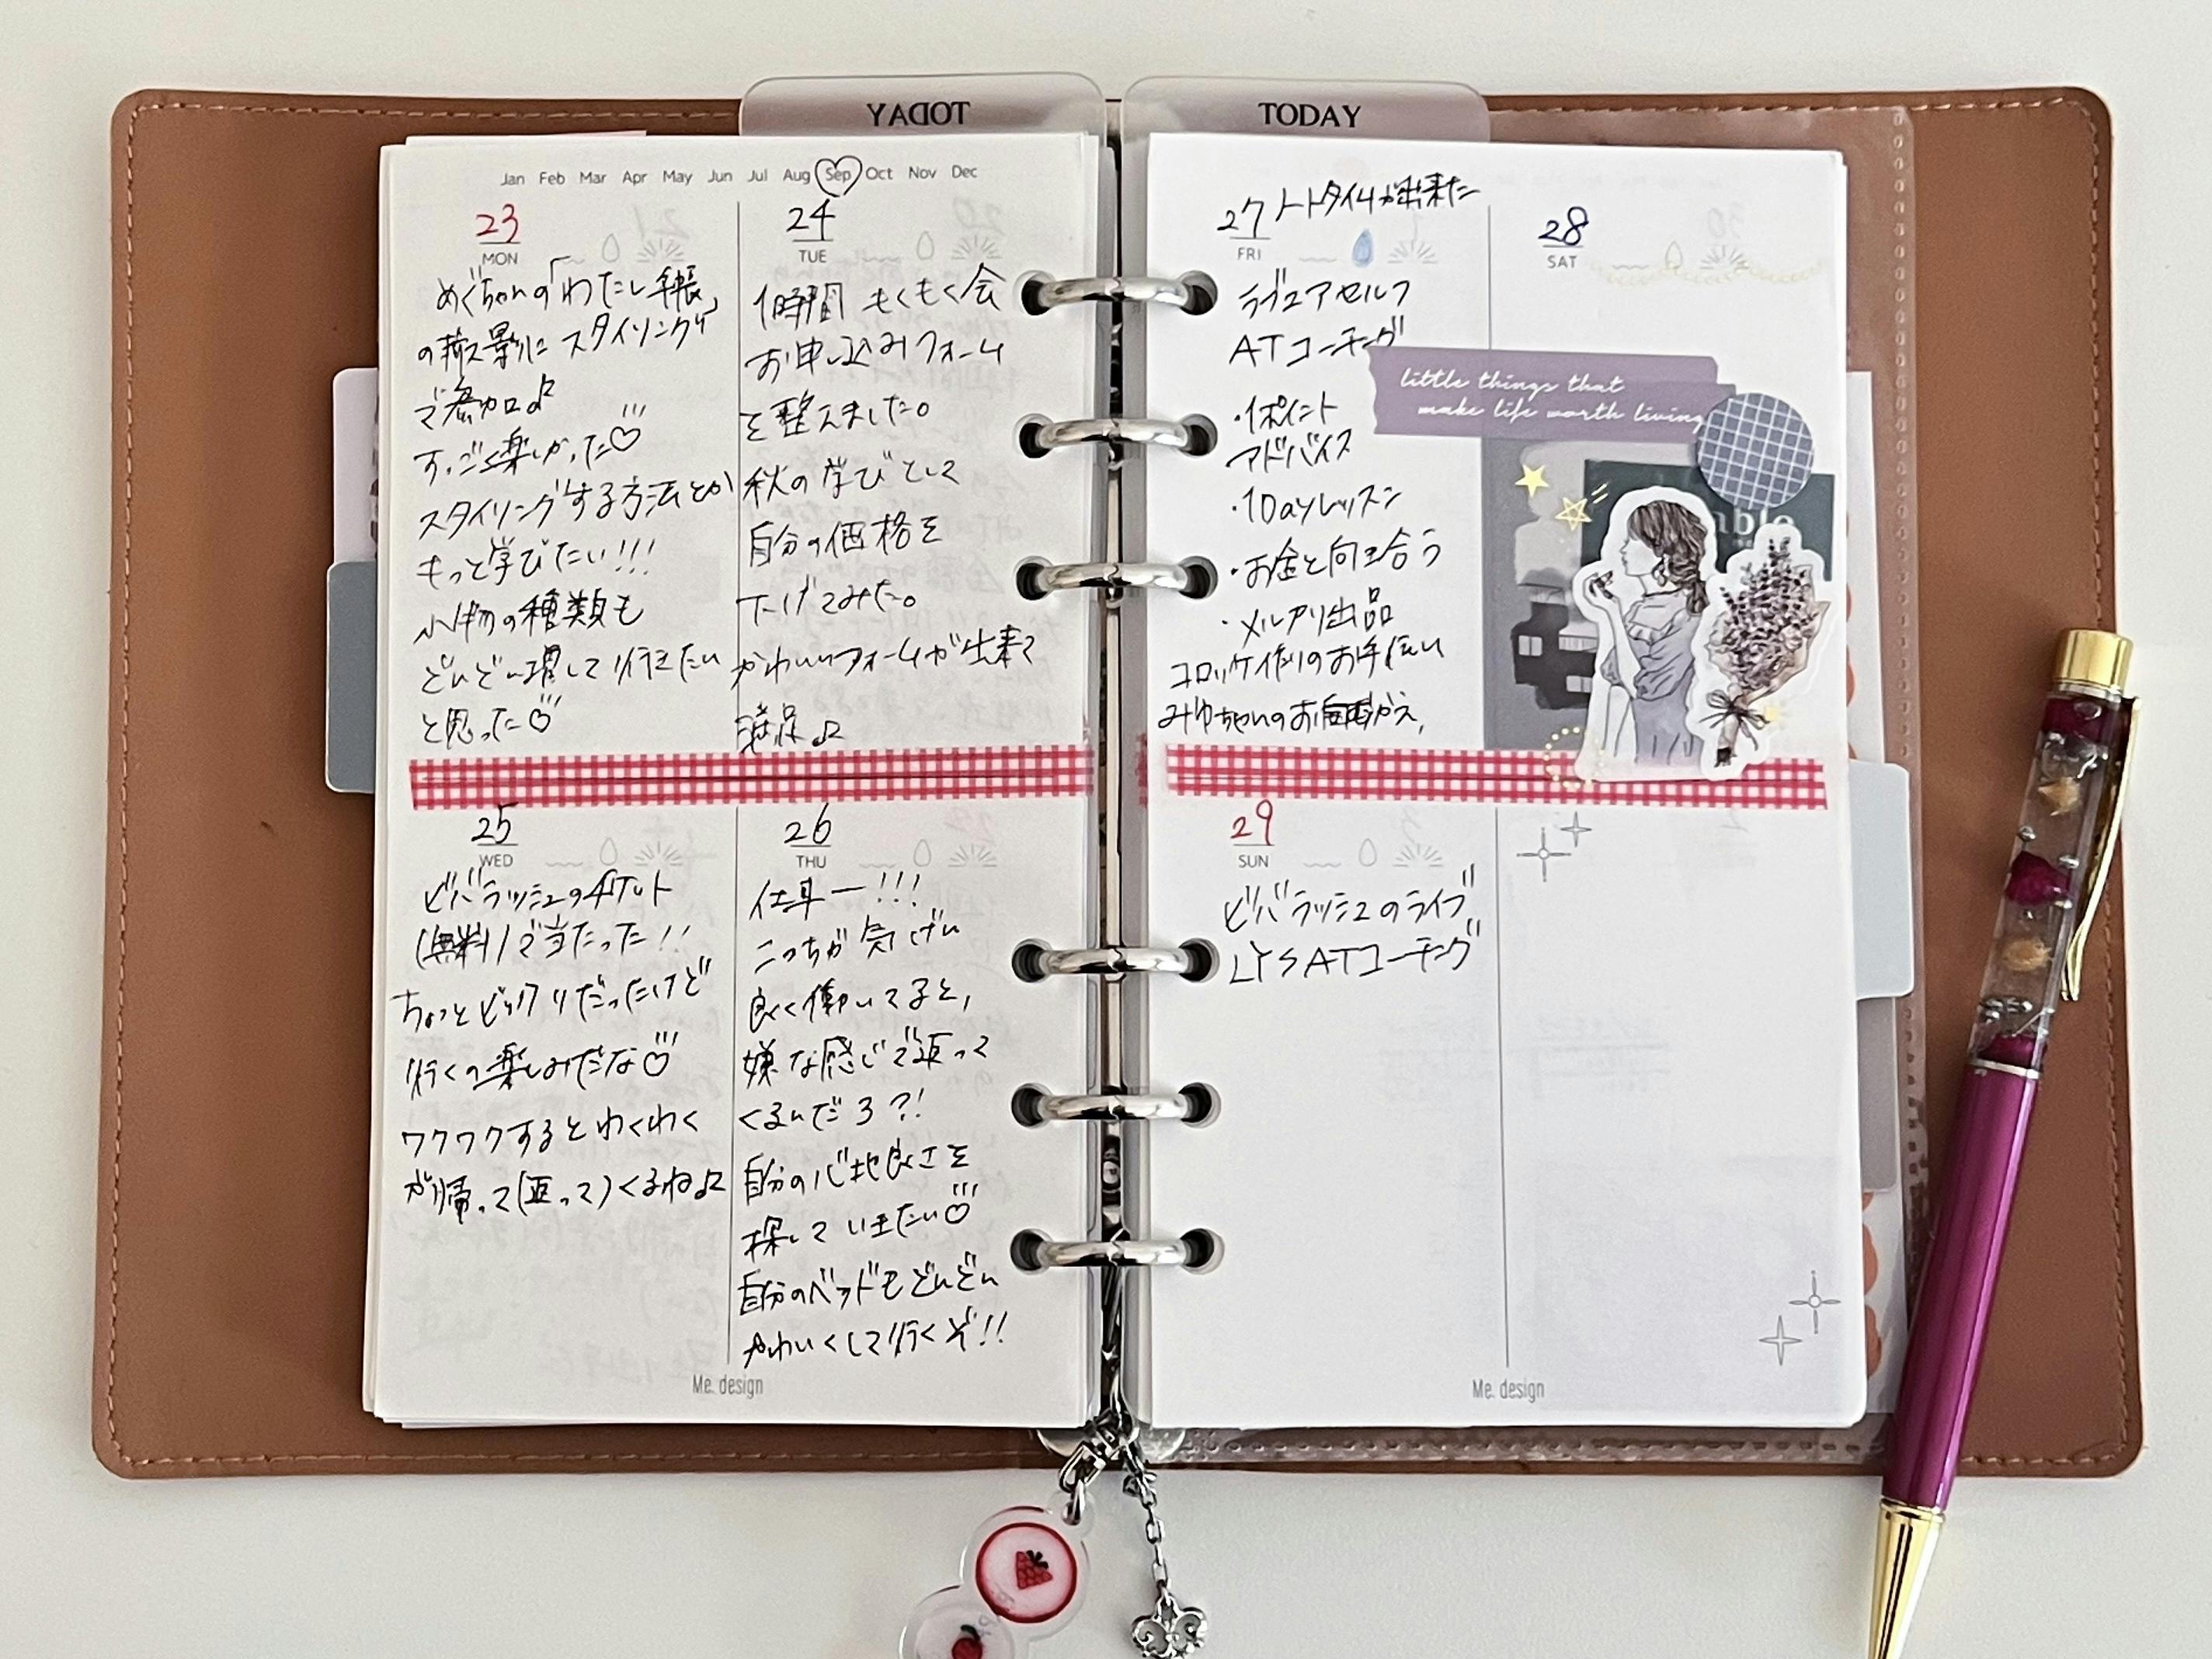 TODAY
TODAY
Jan Feb Mar Apr May Jun Jul Aug Sep Oct Nov Dec
23
MON
めぐちゃんの「わたし手帳」
の撮影に スタイリング
で参加♪
すっごく楽しかった♡
スタイリングする方法とか
もっと学びたい!!!
小物の種類も
どんどん増して行きたい
と思った♡
24
TUE
1時間 もくもく会
お申し込みフォーム
を整えました。
秋の学びとして
自分の価格を
下げてみた。
かわいいフォームが出来て
満足♪
25
WED
ビバラッシュのチケット
(無料)で当たった!!
ちょっとビックリだったけど
行くの楽しみだな♡
ワクワクするとわくわく
が帰って(返って)くるね♪
26
THU
仕事ー!!!
こっちが気げん
良く働いてると、
嫌な感じで返って
くるんだろ?!
自分の心地良さを
探していきたい♡
自分のベッドもどんどん
かわいくして行くぞ!!
Me. design
27 ノートタイムが出来た
FRI
ラヴュアセルフ
ATコーチング
・1ポイント
アドバイス
・1Dayレッスン
・お金と向き合う
・メルカリ出品
コロッケ作りのお手伝い
みゆちゃんのお
28
SAT
little things that
make life worth living
29
SUN
ビバラッシュのライブ
LYS ATコーチング
Me. design